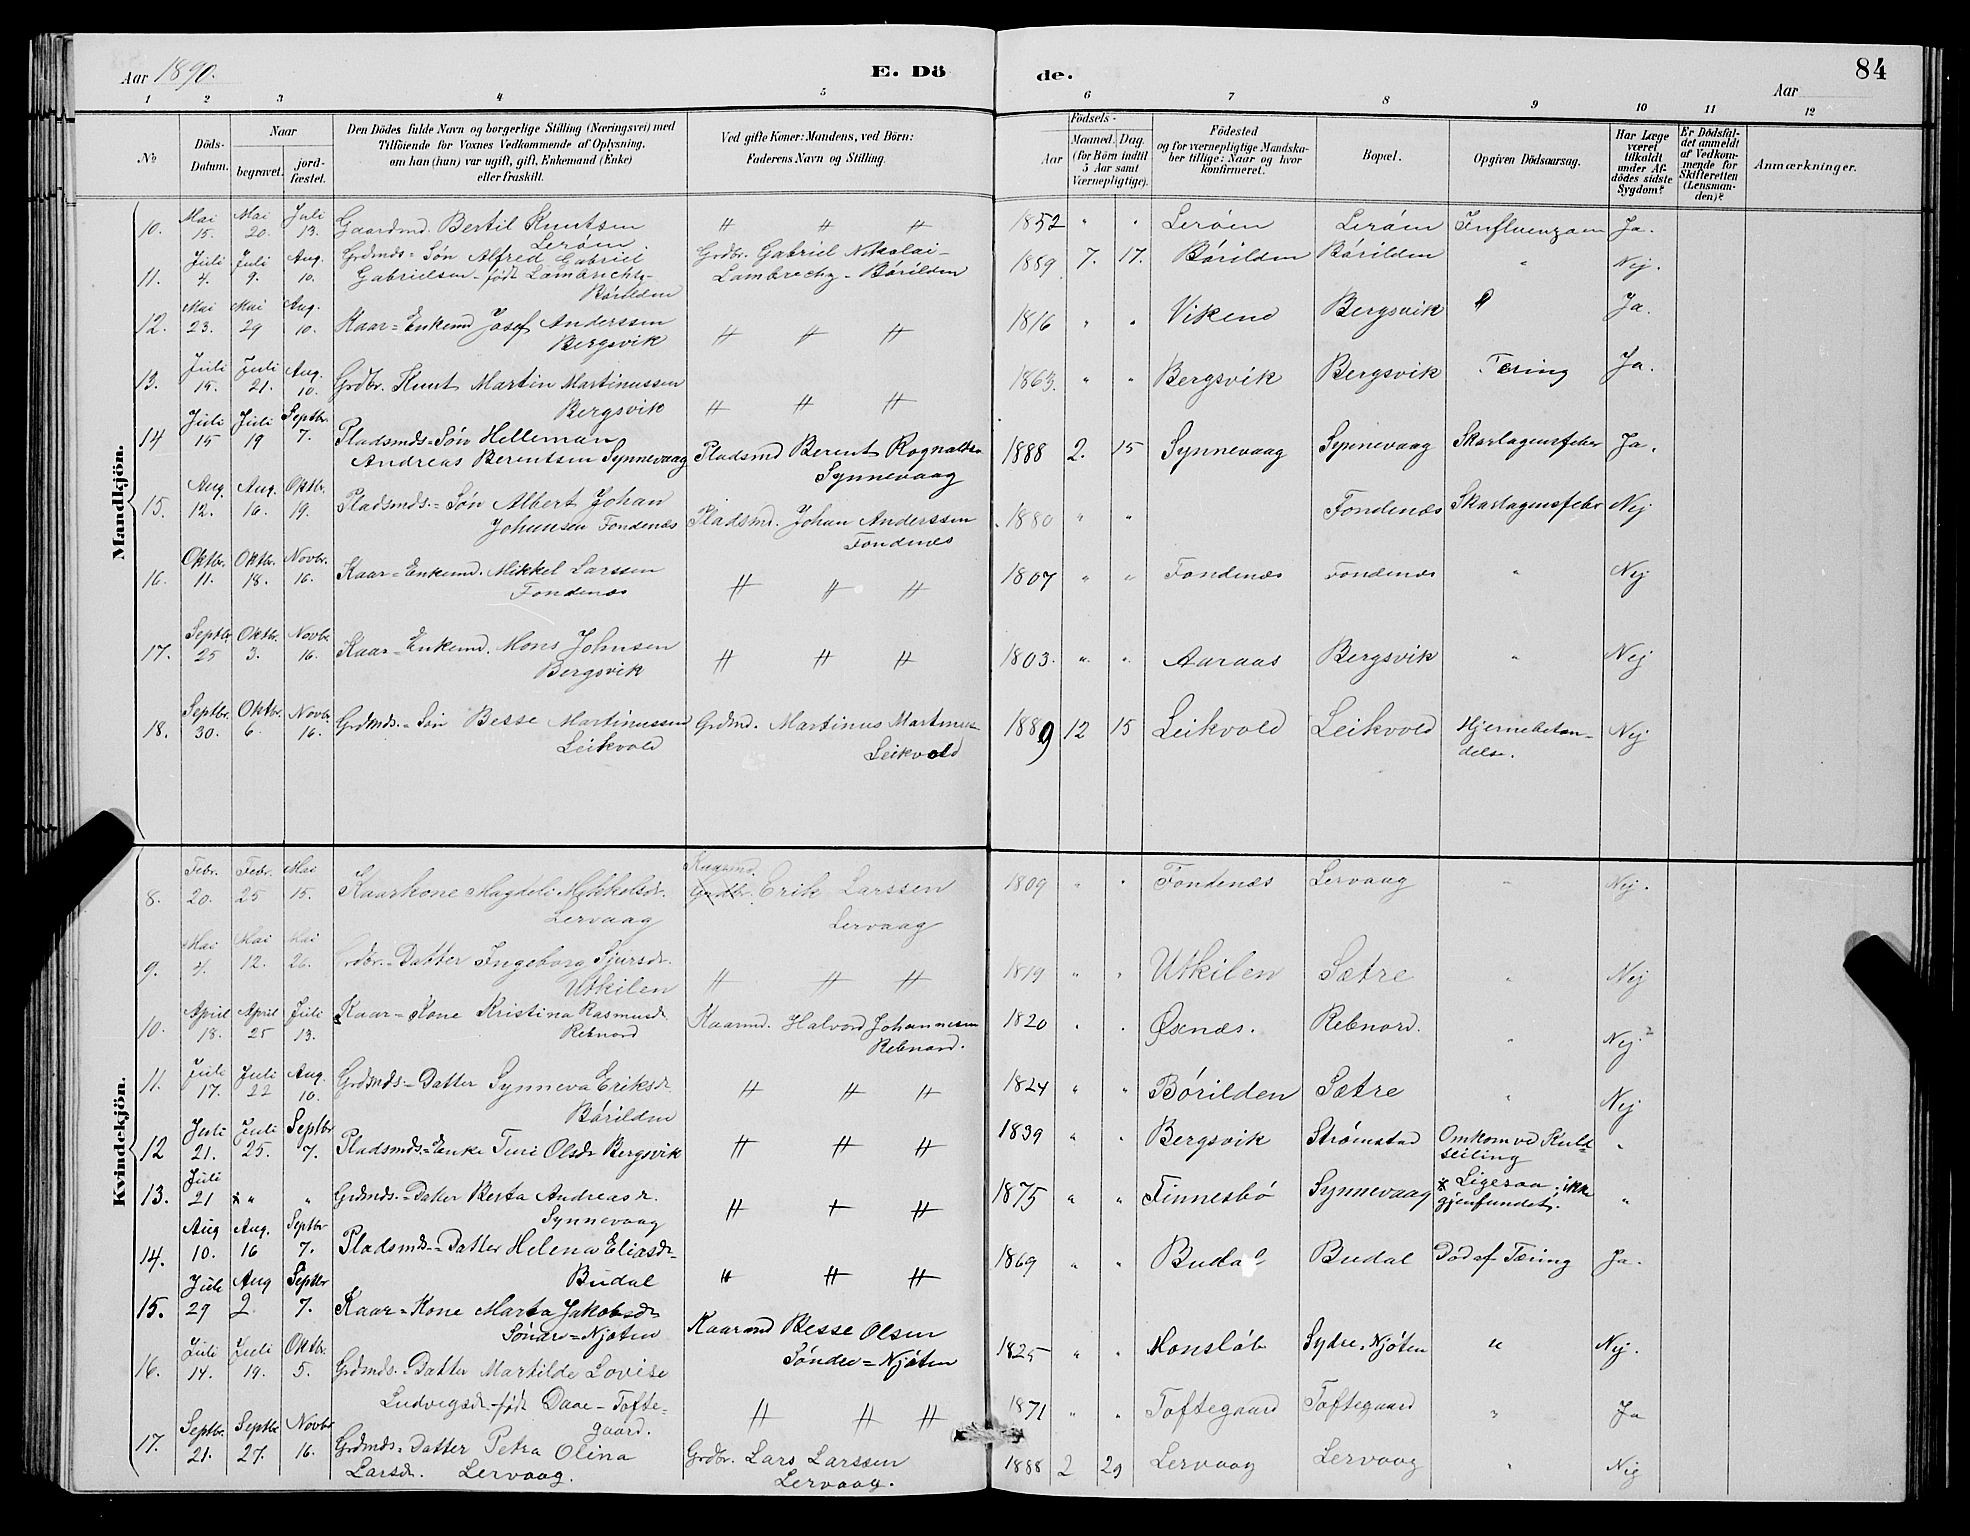 Aar 1890.
E. Dö
de.
84
Aar
1 2 3 4 5 6 7 8 9 10 11 12
No
Döds-Datum.
Naar
begravet.
jord-fæstet.
Den Dödes fulde Navn og borgerlige Stilling (Næringsvei) med
Tilföiende for Voxnes Vedkommende af Oplysning,
om han (hun) var ugift, gift, Enkemand (Enke)
eller fraskilt.
Ved gifte Koner: Mandens, ved Börn:
Faderens Navn og Stilling.
Födsels-
Aar
Maaned. Dag.
(for Börn indtil
5 Aar samt
Værnepligtige).
Födested
og for værnepligtige Mandska-
ber tillige: Naar og hvor
konfirmeret.
Bopæl.
Opgiven Dödsaarsag.
Har Læge
været
tilkaldt
under Af-
dödes sidste
Sygdom?
Er Dödsfal-
det anmeldt
af Vedkom-
mende for
Skifteretten
(Lensman-
den)?
Anmærkninger.
Mandkjön.
10. Mai 15. Mai 20. Juli 13. Gaardmd. Bertil Knutsen
Lerøim. " " " 1852 " " Lerøim Lerøim Influenzaen Ja.
11. Juli 4. Juli 9. Aug. 10. Grdmds.=Søn Alfred Gabriel
Gabrielsen - født Lambrechts-
Børilden Grdbr. Gabriel Nikolai-
Lambrechts - Børilden 1889 7. 17. Børilden Børilden " Nej.
12. Mai 23. Mai 29 Aug. 10. Kaar=Enkemd Josef Anderssen
Bergsvik " " " 1816 " " Vikene Bergsvik Ja.
13. Juli 15. Juli 21. Aug. 10. Grdbr. Knut Martin Martinussen
Bergsvik " " " 1863. " " Bergsvik Bergsvik Tæring Ja.
14 Juli 15 Juli 19 Septbr. 7. Pladsmds=Søn Helleman
Andreas Berentsen Synnevaag Pladsmd Berent Rognalds.
Synnevaag 1888 2. 15 Synnevaag Synnevaag Skarlagensfeber Ja.
15. Aug. 12. Aug. 16. Oktbr. 19. Pladsmds.=Søn Albert Johan
Johansen Fondenæs Pladsmd. Johan Anderssen
Fondenæs 1880 " " Fondenæs Skarlagensfeber Nej
16. Oktbr. 11. Oktbr. 18. Novbr. 16. Kaar=Enkemd. Mikkel Larssen
Fondenæs " " " 1807 " " Fondenæs Fondenæs " Nej
17. Septbr. 25 Oktbr. 3. Novbr. 16. Kaar=Enkemd. Mons Johnsen
Bergsvik " " " 1803. " " Aaraas Bergsvik " Nej
18. Septbr. 30. Oktbr. 6. Novbr. 16. Grdmds.=Søn Besse Martinussen
Leikvold Grdmd. Martinus Martines-
Leikvold 1889 12 15 Leikvold Leikvold Hjernebetæn-
delse. Nej
Kvindekjön.
8. Febr. 20. Febr. 25 Mai 15. Kaarkone Magdeli Mikkelsdr.
Lervaag Kaarmd. Grdbr. Erik Larssen
Lervaag 1809 " " Fondenæs Lervaag " Nej.
9. Mai 4. Mai 12. Mai 26. Grdbr.=Datter Ingeborg Sjursdr.
Utkilen " " " 1819 " " Utkilen Sætre " Nej
10. April 18. April 25 Juli 13. Kaar=Kone Kristina Rasmusdr.
Rebnord Kaarmd. Halvord Johannesen
Rebnord. 1820 " " Øxnæs. Rebnord. " Nej.
11. Juli 17. Juli 22 Aug. 10. Grdmds.=Datter Synneva Eriksdr.
Børilden " " " 1824 " " Børilden Sætre " Nej
12 Juli 21. Juli 25. Septbr 7. Pladsmds.=Enke Turi Olsdr Bergsvik " " " 1839 " " Bergsvik Strømstad Omkom ved Kuld-
seiling "
13. Juli 21 x " " Grdmds.=Datter Berta Andreasdr.
Synnevaag " " " 1875 " " Finnesbø Synnevaag x Ligesaa, ikke
gjenfundet. "
14. Aug 10. Aug. 16 Septbr 7. Pladsmds.=Datter Helena Eliasdr-
Budal " " " 1869 " " Budal Budal Død af Tæring Ja.
15. Juli 29 Aug 2. Septbr 7. Kaar=Kone Marta Jakobsdr
Søndr=Njøten Kaarmd Besse Olsen
Søndre=Njøten 1825 " " Monsløb Sydre. Njøten " Nej.
16. Juli 14. Juli 19. Oktbr. 5. Grdmds.=Datter Martilde Lovise
Ludvigsdr-født Daae - Tofte-
gaard. " " " 1871 " " Toftegaard Toftegaard " Ja
17. Septbr. 21. Septbr 27. Novbr 16. Grdmds.=Datter Petra Olina
Larsdr. Lervaag. Grdbr. Lars Larssen
Lervaag. 1888 2 29 Lervaag Lervaag " Nej